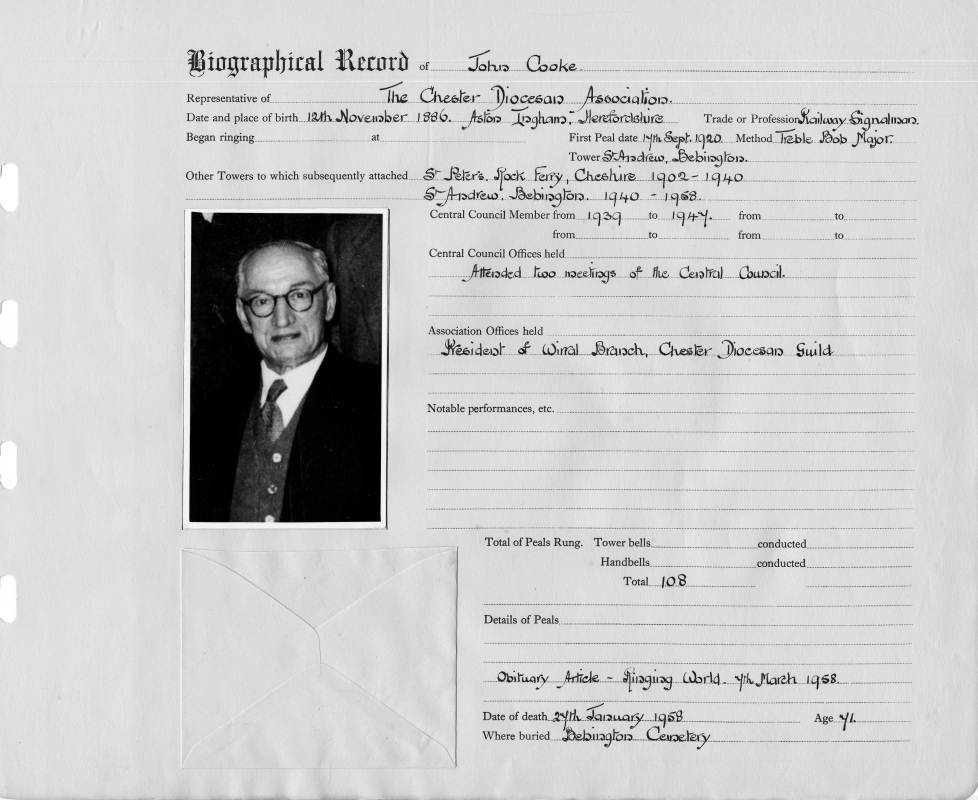 Biographical Record of John Cooke.
Representative of The Chester Diocesan Association.
Date and place of birth 12th November 1886. Aston Ingham, Herefordshire Trade or Profession Railway Signalman.
Began ringing at First Peal date 17th Sept. 1920 Method Treble Bob Major.
Tower St Andrew, Bebington.
Other Towers to which subsequently attached St Peter's. Rock Ferry, Cheshire 1902-1940
St Andrew. Bebington. 1940 - 1958.
Central Council Member from 1939 to 1947. from to
from to from to
Central Council Offices held
Attended two meetings of the Central Council.
Association Offices held
President of Wirral Branch, Chester Diocesan Guild
Notable performances, etc.
Total of Peals Rung. Tower bells conducted
Handbells conducted
Total 108
Details of Peals
Obituary Article - Ringing World. 7th March 1958.
Date of death 27th January 1958 Age 71.
Where buried Bebington Cemetery